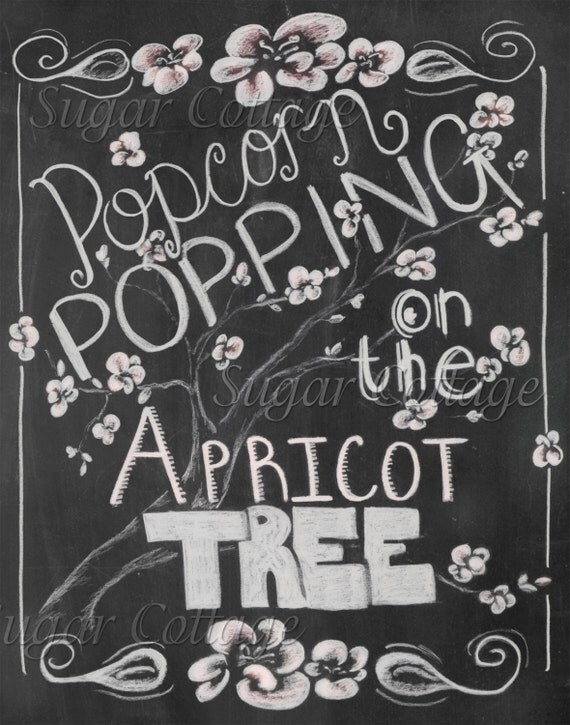 Sugar Cottage
Popcorn
POPPING
on
the
Sugar Cottage
APRICOT
TREE
Sugar Cottage